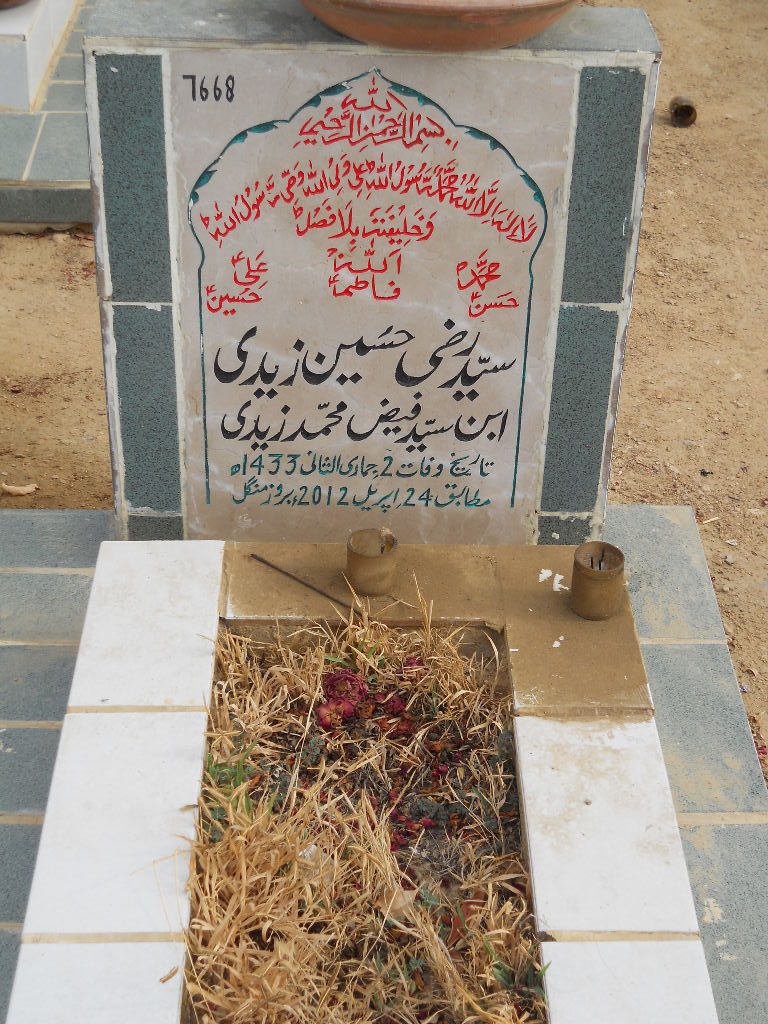 7668
بسم اللہ الرحمن الرحیم
لا الہ الا اللہ محمد رسول اللہ علی ولی اللہ وصی رسول اللہ
وخلیفتہ بلا فصل
محمد اللہ علی
حسن فاطمہ حسین
سید رضی حسین زیدی
ابن سید فیض محمد زیدی
تاریخ وفات 2 جمادی الثانی 1433ھ
مطابق 24 اپریل 2012ء بروز منگل